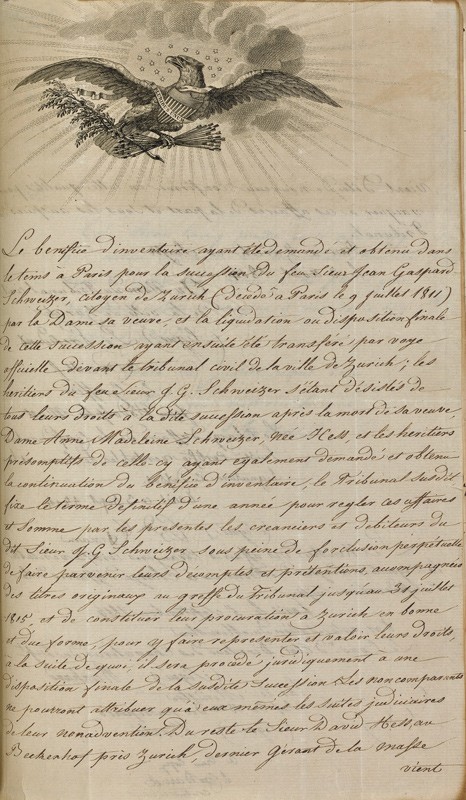 Le benifice d'inventaire ayant été demandé et obtenu dans
le tems à Paris pour la succession du feu Sieur Jean Gaspard
Schweizer, citoyen de Zurich (décédé à Paris le 9 juillet 1811)
par la Dame sa veuve, et la liquidation ou disposition finale
de cette succession ayant ensuite été transféré par voye
officielle devant le tribunal civil de la ville de Zurich; les
heritiers du feu Sieur J. G. Schweizer s'étant désistés de
tous leurs droits à la dite succession après la mort de sa veuve,
Dame Anne Madeleine Schweizer, née Hess, et les heritiers
présomptifs de celle-cy ayant également demandé et obtenu
la continuation du benifice d'inventaire, le Tribunal susdit
fixe le terme definitif d'une année pour regler ces affaires
et somme par les presentes les creanciers et debiteurs du
dit Sieur J. G Schweizer sous peine de forclusion perpétuelle,
de faire parvenir leurs décomptes et prétentions, accompagnées
des titres originaux au greffe du Tribunal jusqu'au 31 juillet
1815, et de constituer leur procuration à Zurich en bonne
et due forme, pour y faire representer et valoir leurs droits,
à la suite de quoi il sera procédé juridiquement à une
disposition finale de la susdite succession. Les noncomparants
ne pourront attribuer qu'à eux mêmes les suites judiciaires
de leur nonadvention. Du reste le Sieur David Hess au
Beckenhof près Zurich, dernier Gérant de la masse
vient